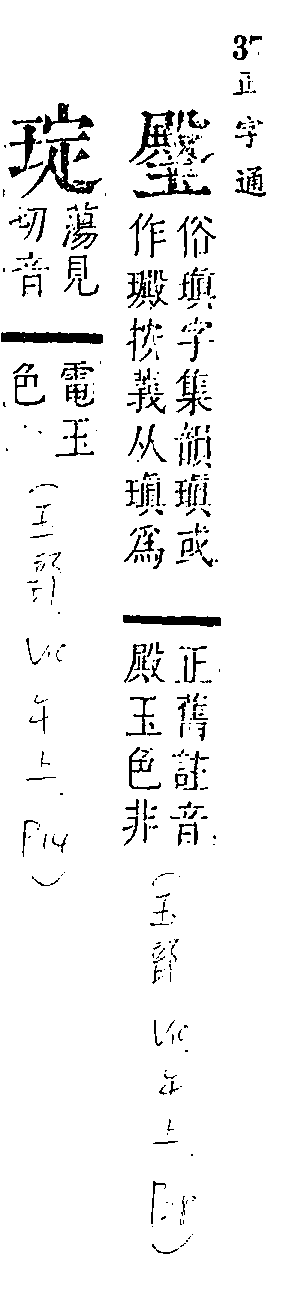 37
正字通
俗瑱字集韻瑱或
作㻅按義从瑱為
正舊註音
殿玉色非
(玉部 午上
琔
蕩見
切音
電玉
色
(玉部 午上 P14)